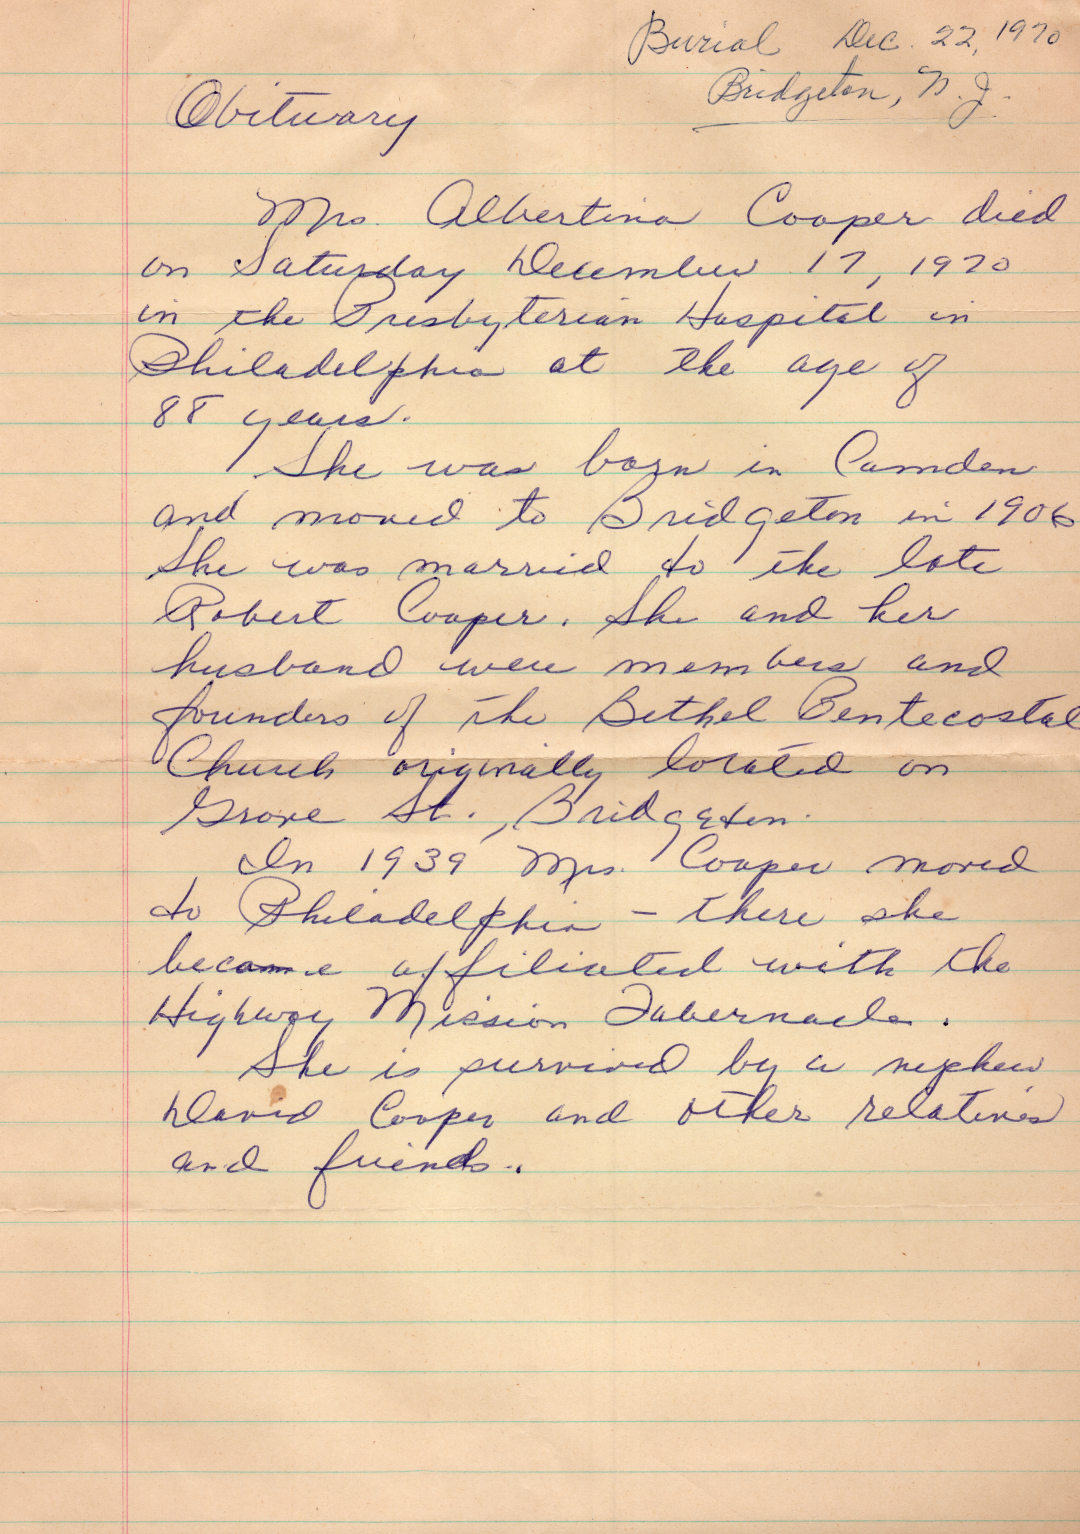 Burial Dec. 22, 1970
Bridgeton, N. J.
Obituary
Mrs. Albertina Cooper died
on Saturday December 17, 1970
in the Presbyterian Hospital in
Philadelphia at the age of
88 years.
She was born in Camden
and moved to Bridgeton in 1906
She was married to the late
Robert Cooper. She and her
husband were members and
founders of the Bethel Pentecostal
Church originally located on
Grove St., Bridgeton.
In 1939 Mrs. Cooper moved
to Philadelphia - there she
became affiliated with the
Highway Mission Tabernacle.
She is survived by a nephew
David Cooper and other relatives
and friends.